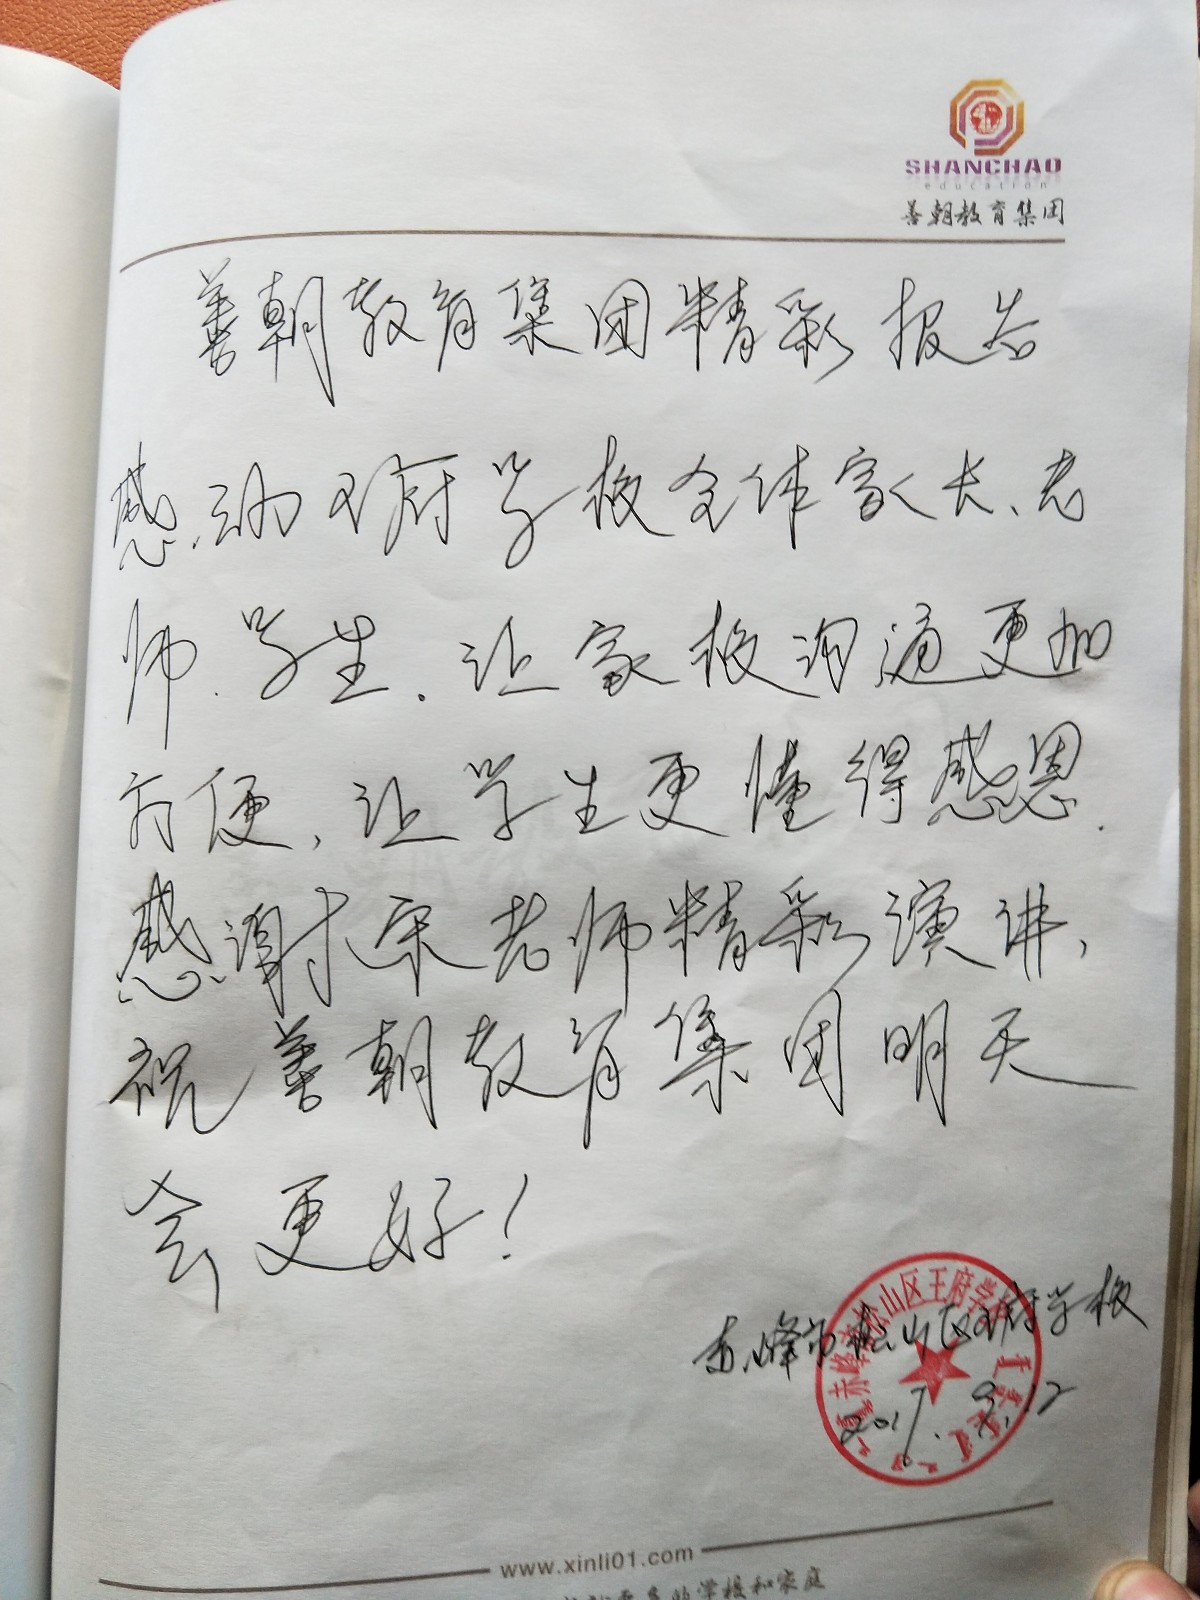 SHANCHAO
education
善朝教育集团
善朝教育集团精彩报告
感动王府学校全体家长、老
师、学生.让家校沟通更加
方便,让学生更懂得感恩.
感谢宋老师精彩演讲,
祝善朝教育集团明天
会更好!
赤峰市松山区王府学校
2017.9.12
赤峰市松山区王府学校
www.xinli01.com
的学校和家庭